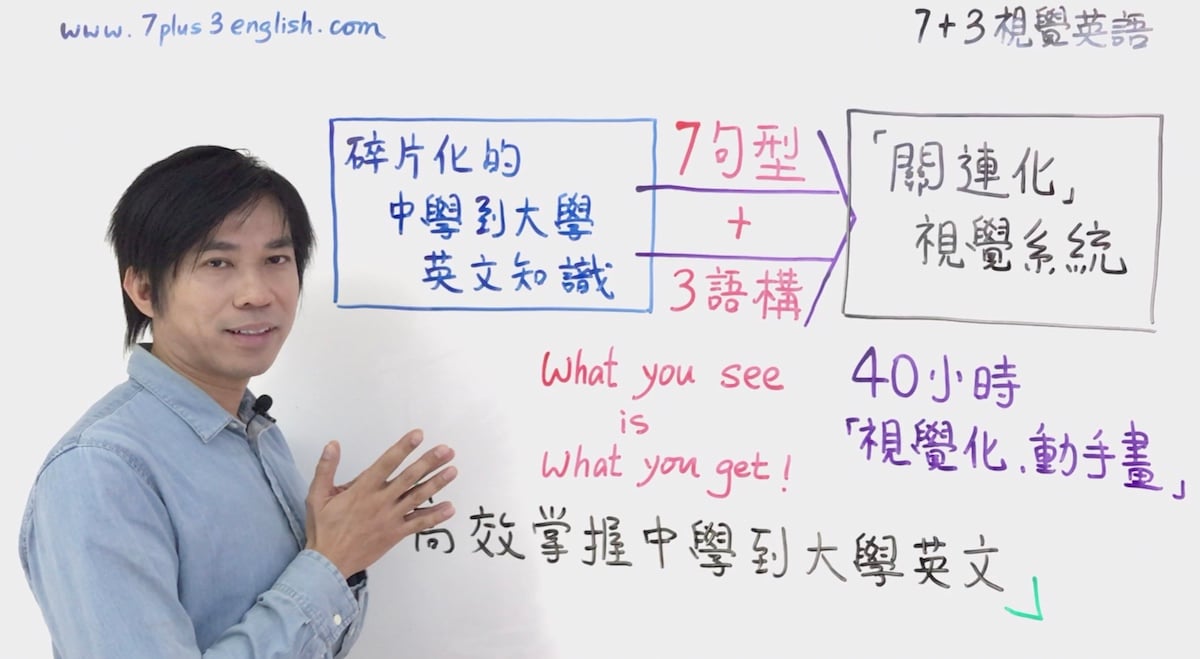 www.7plus3english.com
7+3視覺英語
碎片化的
中學到大學
英文知識
7句型
+
3語構
「關連化」
視覺系統
What you see
is
What you get!
40小時
「視覺化、動手畫」
高效掌握中學到大學英文」